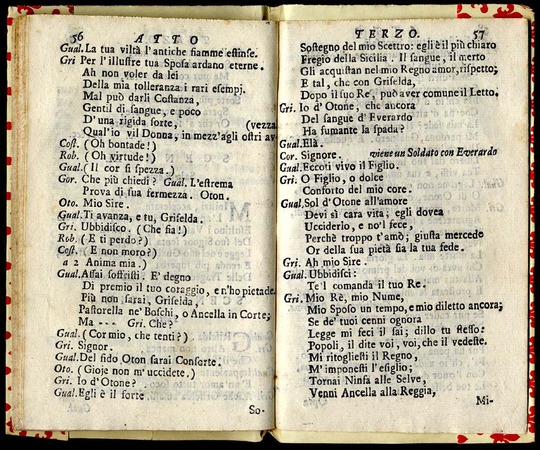 56 ATTO
Gual. La tua viltà l'antiche fiamme estinse.
Gri Per l'illustre tua Sposa ardano eterne.
Ah non voler da lei
Della mia tolleranza i rari esempj.
Mal può darli Costanza,
Gentil di sangue, e poco
D'una rigida sorte, (vezza
Qual'io vil Donna, in mezz'agli ostri av
Cost. (Oh bontade!)
Rob. (Oh virtude!)
Gual. (Il cor si spezza.)
Gor. Che più chiedi? Gual. L'estrema
Prova di sua fermezza. Oton.
Oto. Mio Sire.
Gual. Ti avanza, e tu, Griselda.
Gri. Ubbidisco. (Che fia!)
Rob. (E ti perdo?)
Cost. (E non moro?)
a 2 Anima mia.)
Gual. Assai soffristi. E' degno
Di premio il tuo coraggio, e n'ho pietade.
Più non sarai, Griselda,
Pastorella ne' Boschi, o Ancella in Corte;
Ma --- Gri. Che?
Gual. (Cor mio, che tenti?)
Gri. Signor.
Gual. Del fido Oton sarai Consorte.
Oto. (Gioje non m'uccidete.)
Gri. Io d'Otone?
Gual. Egli è il forte
So-
TERZO. 57
Sostegno del mio Scettro: egli è il più chiaro
Fregio della Sicilia. Il sangue, il merto
Gli acquistan nel mio Regno amor, rispetto;
E tal, che con Griselda,
Dopo il suo Re, può aver comune il Letto.
Gri. Io d'Otone, che ancora
Del sangue d'Everardo
Ha fumante la spada?
Gual. Elà.
Cor. Signore. viene un Soldato con Everardo
Gual. Eccoti vivo il Figlio.
Gri. O Figlio, o dolce
Conforto del mio core.
Gual. Sol d'Otone all'amore
Devi sì cara vita; egli dovea
Ucciderlo, e no'l fece,
Perchè troppo t'amò; giusta mercede
Or della sua pietà sia la tua fede.
Gri. Ah mio Sire
Gual. Ubbidisci:
Te'l comanda il tuo Re.
Gri. Mio Rè, mio Nume,
Mio Sposo un tempo, e mio diletto ancora;
Se de' tuoi cenni ognora
Legge mi feci il sai; dillo tu stesso:
Popoli, il dite voi, voi, che il vedeste.
Mi ritogliesti il Regno,
M'imponesti l'esiglio;
Tornai Ninfa alle Selve,
Venni Ancella alla Reggia,
Mi-